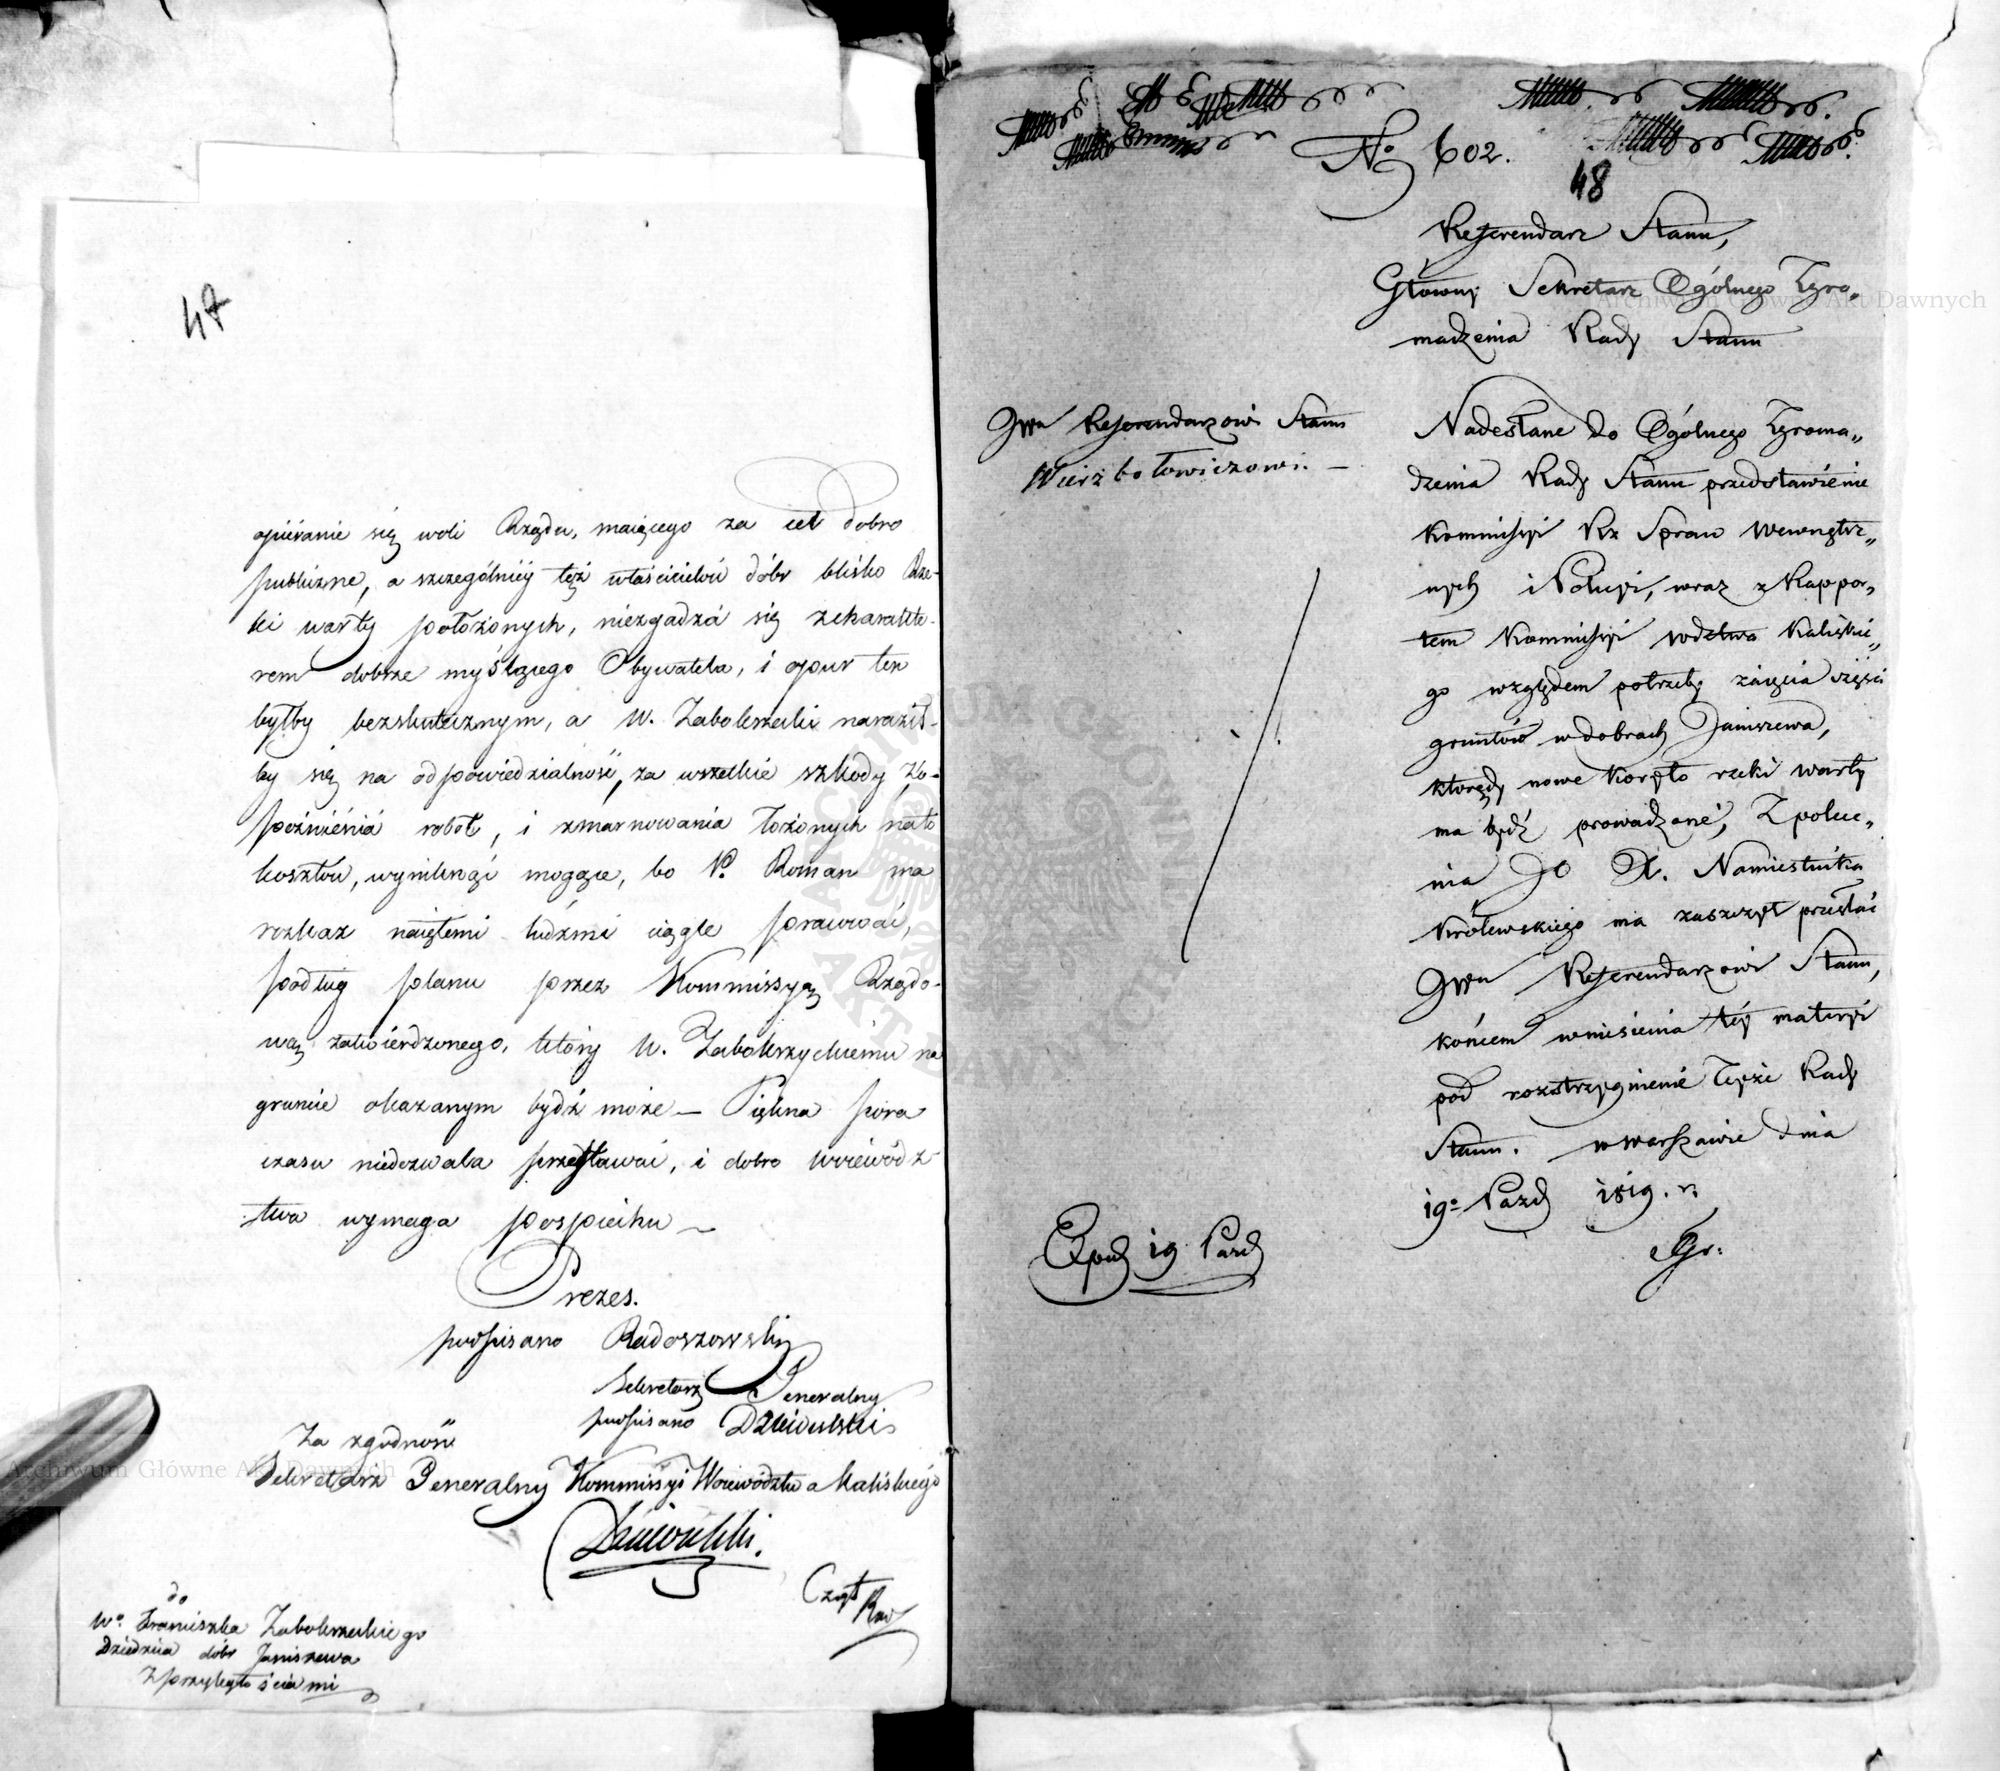 47
opiéranie się woli Rządu, maiącego za cel dobro
publiczne, a szczególniéy téż właścicielów dóbr blisko Rze-
ki warty położonych, niezgadzá się z charakte-
rem dobrze myślącego Obywatela, i opór ten
byłby bezskutecznym, a W. Zabokrzecki naraził-
by się na odpowiedzialność, za wszelkie szkody z o-
późnieniá robot, i zmarnowania łożonych na to
kosztów, wyniknąć mogące, bo P. Roman ma
rozkaz naiętemi ludźmi ciągle pracować,
podług planu przez Kommissyą Rządo-
wą zatwierdzonego, który W. Zabokrzyckiemu na
gruncie okazanym bydź może — Piękna pora
czasu niedozwala przestawać, i dobro Woiewódz-
twa wymaga pospiechu —
Prezes.
podpisano Radoszewski
Sekretarz Generalny
podpisano Dziewulski
Za zgodność
Sekretarz Generalny Kommissyi Woiewództwa Kaliskiégo
Dziewulski.
Czyt
do
Wo. Franciszka Zabokrzeckiego
Dziedzica dóbr Janiszewa
z przyległościami
No 602.
48
Referendarz Stanu,
Główny Sekretarz Ogólnego Zgro„
madzenia Rady Stanu
JWu Referendarzowi Stanu
Wierzbołowiczowi. —
Nadesłane do Ogólnego Zgroma„
dzenia Rady Stanu przedstawienie
Kommissyi Rz Spraw Wewnętrz„
nych i Policyi, wraz z Rappor„
tem Kommissyi wdztwa Kaliskie„
go względem potrzeby zaięcia części
gruntów w dobrach Janiszewa,
którędy nowe koryto rzeki warty
ma bydź prowadzoné, z polece„
nia JO X. Namiestnika
Królewskiego ma zaszczyt przesłać
JWu Referendarzowi Stanu,
końcem wniesienia téy materyi
pod rozstrzygnienié Teyże Rady
Stanu. w Warszawie dnia
19o Pazd 1819. r.
Gr.
Exped 19 Pazd
Archiwum Główne Akt Dawnych
Archiwum Główne Akt Dawnych